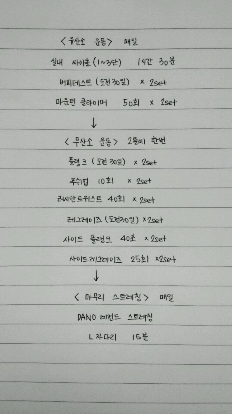 <유산소 운동> 매일
실내 사이클 (1~3단) 1시간 30분
버피테스트 (도전 30일) × 2set
마운틴 클라이머 50회 × 2set
↓
<무산소 운동> 2틀에 한번
플랭크 (도전 30일) × 2set
푸쉬업 10회 × 2set
러시안트위스트 40회 × 2set
레그레이즈 (도전30일) × 2set
사이드 플랭크 40초 × 2set
사이드레그레이즈 25회 × 2set
↓
<마무리 스트레칭> 매일
DANO 레전드 스트레칭
L자다리 15분